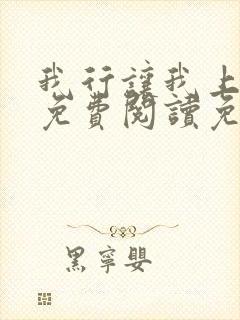 我行讓我上
免費閱讀免
黑寧嬰